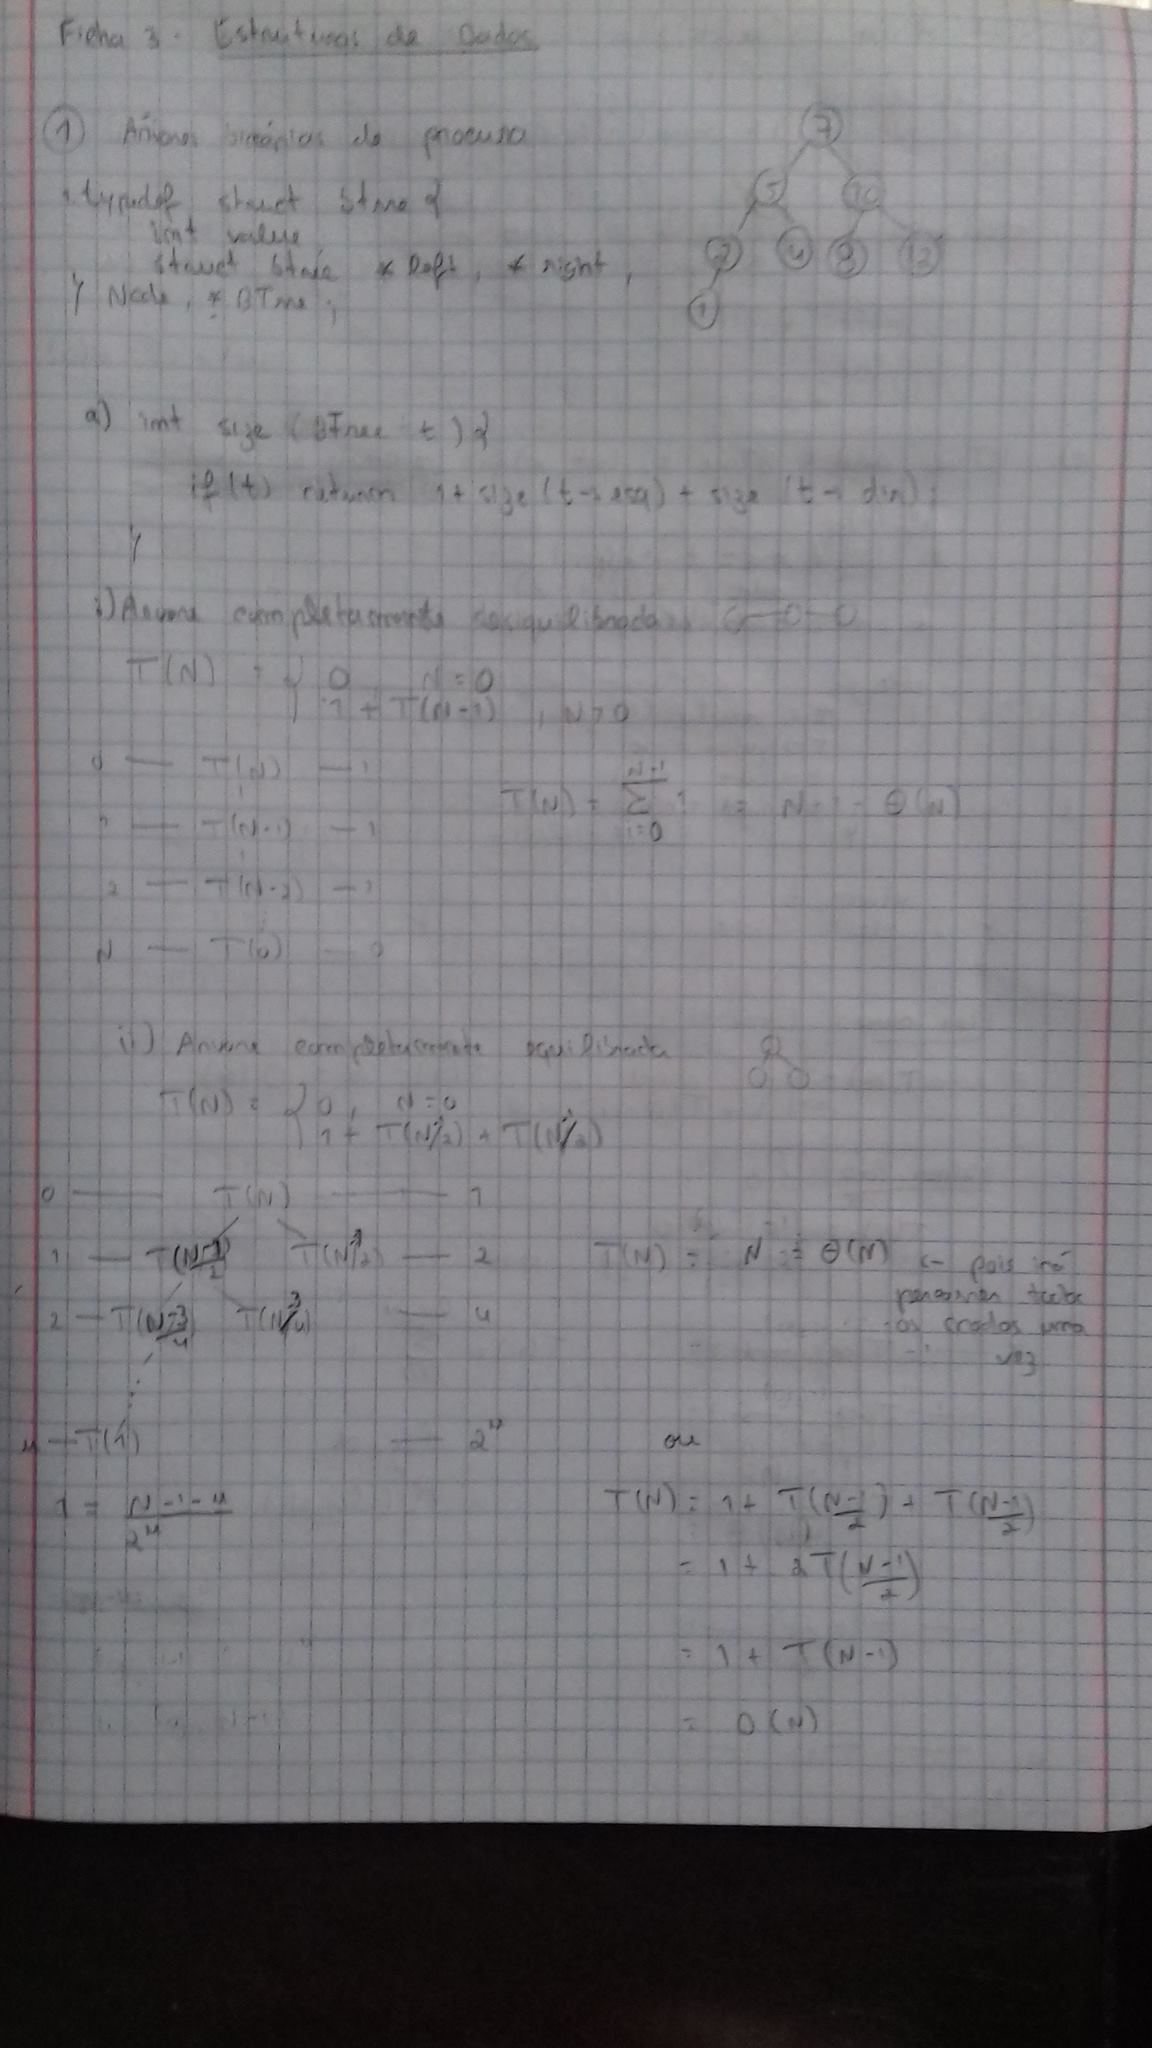 Ficha 3 - Estruturas de Dados
① Árvores binárias de procura
typedef struct btree {
int value
struct btree * left, * right,
} Node, * BTree ;
7
5 10
2 4 8 12
1
a) int size (BTree t) {
if (t) return 1 + size (t → esq) + size (t → dir) ;
}
i) Árvore completamente desiquilibrada
T(N) = { 0 N = 0
1 + T(N-1) , N > 0
0 — T(N) — 1
1 — T(N-1) — 1
2 — T(N-2) — 1
N — T(0) — 0
T(N) = Σ 1 = N = Θ(N)
N-1
i=0
ii) Árvore completamente equilibrada
T(N) = { 0 , N = 0
1 + T(N/2) + T(N/2)
0 — T(N) — 1
1 — T(N-1/2) T(N/2) — 2
2 — T(N-3/4) T(N-3/4) — 4
T(N) = N = Θ(N) <- pois irá
percorrer todos
os uma
vez
— T(1) —
ou
T(N) = 1 + T(N-1/2) + T(N-1/2)
= 1 + 2T(N-1/2)
= 1 + T(N-1)
= O(N)